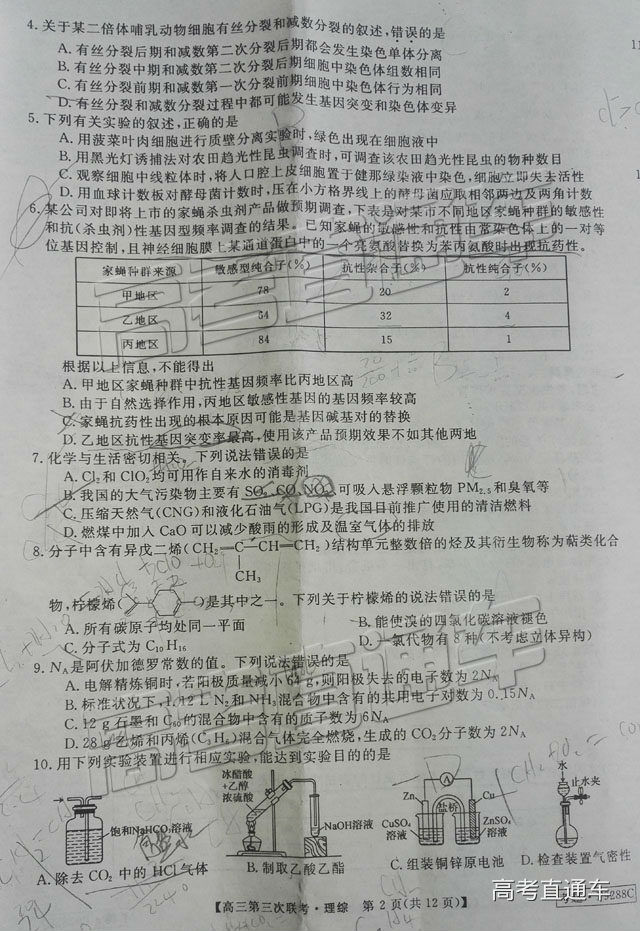 4.关于某二倍体哺乳动物细胞有丝分裂和减数分裂的叙述,错误的是
A.有丝分裂后期和减数第二次分裂后期都会发生染色单体分离
B.有丝分裂中期和减数第二次分裂后期细胞中染色体组数相同
C.有丝分裂前期和减数第一次分裂前期细胞中染色体行为相同
D.有丝分裂和减数分裂过程中都可能发生基因突变和染色体变异
5.下列有关实验的叙述,正确的是
A.用菠菜叶肉细胞进行质壁分离实验时,绿色出现在细胞液中
B.用黑光灯诱捕法对农田趋光性昆虫调查时,可调查该农田趋光性昆虫的物种数目
C.观察细胞中线粒体时,将人口腔上皮细胞置于健那绿染液中染色,细胞立即失去活性
D.用血球计数板对酵母菌计数时,压在小方格界线上的酵母菌应取相邻两边及两角计数
6.某公司对即将上市的家蝇杀虫剂产品做预期调查,下表是对某市不同地区家蝇种群的敏感性
和抗(杀虫剂)性基因型频率调查的结果。已知家蝇的敏感性和抗性由常染色体上的一对等
位基因控制,且神经细胞膜上某通道蛋白中的一个亮氨酸替换为苯丙氨酸时出现抗药性。
家蝇种群来源 敏感型纯合子(%) 抗性杂合子(%) 抗性纯合子(%)
甲地区 78 20 2
乙地区 64 32 4
丙地区 84 15 1
根据以上信息,不能得出
A.甲地区家蝇种群中抗性基因频率比丙地区高
B.由于自然选择作用,丙地区敏感性基因的基因频率较高
C.家蝇抗药性出现的根本原因可能是基因碱基对的替换
D.乙地区抗性基因突变率最高,使用该产品预期效果不如其他两地
7.化学与生活密切相关。下列说法错误的是
A.Cl₂和ClO₂均可用作自来水的消毒剂
B.我国的大气污染物主要有SO₂、CO、NO₂、可吸入悬浮颗粒物PM₂.₅和臭氧等
C.压缩天然气(CNG)和液化石油气(LPG)是我国目前推广使用的清洁燃料
D.燃煤中加入CaO可以减少酸雨的形成及温室气体的排放
8.分子中含有异戊二烯(CH₂=C—CH=CH₂)结构单元整数倍的烃及其衍生物称为萜类化合
CH₃
物,柠檬烯( )是其中之一。下列关于柠檬烯的说法错误的是
A.所有碳原子均处同一平面 B.能使溴的四氯化碳溶液褪色
C.分子式为C₁₀H₁₆ D.一氯代物有8种(不考虑立体异构)
9.Nᴀ是阿伏加德罗常数的值。下列说法错误的是
A.电解精炼铜时,若阳极质量减小64 g,则阳极失去的电子数为2Nᴀ
B.标准状况下,1.12 L N₂和NH₃混合物中含有的共用电子对数为0.15Nᴀ
C.12 g石墨和C₆₀的混合物中含有的质子数为6Nᴀ
D.28 g乙烯和丙烯(C₃H₆)混合气体完全燃烧,生成的CO₂分子数为2Nᴀ
10.用下列实验装置进行相应实验,能达到实验目的的是
饱和NaHCO₃溶液
冰醋酸
+乙醇
浓硫酸
NaOH溶液
A
Zn Cu
盐桥
CuSO₄
溶液
ZnSO₄
溶液
水
止水夹
A.除去CO₂中的HCl气体 B.制取乙酸乙酯 C.组装铜锌原电池 D.检查装置气密性
【高三第三次联考·理综 第2页(共12页)】
高考直通车